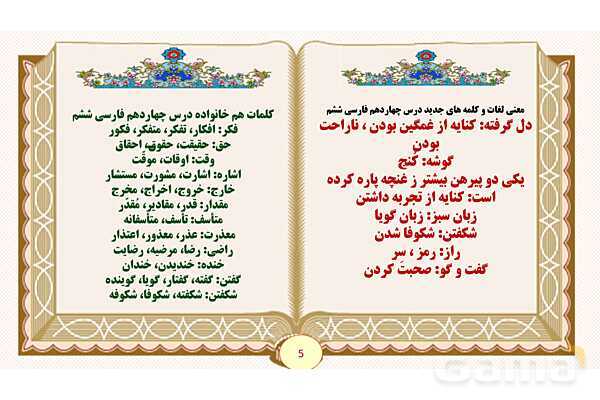 معنی لغات و کلمه های جدید درس چهاردهم فارسی ششم
دل گرفته: کنایه از غمگین بودن ، ناراحت
بودن
گوشه: کُنج
یکی دو پیرهن بیشتر ز غنچه پاره کرده
است: کنایه از تجربه داشتن
زبان سبز: زبان گویا
شکفتن: شکوفا شدن
راز: رمز ، سر
گفت و گو: صحبت کردن
کلمات هم خانواده درس چهاردهم فارسی ششم
فکر: افکار، تفکر، متفکر، فکور
حق: حقیقت، حقوق، احقاق
وقت: اوقات، موقّت
اشاره: اشارت، مشورت، مستشار
خارج: خروج، اخراج، مخرج
مقدار: قدر، مقادیر، مُقدّر
متأسف: تأسف، متأسفانه
معذرت: عذر، معذور، اعتذار
راضی: رضا، مرضیه، رضایت
خنده: خندیدن، خندان
گفتن: گفته، گفتار، گویا، گوینده
شکفتن: شکفته، شکوفا، شکوفه
5
Gama